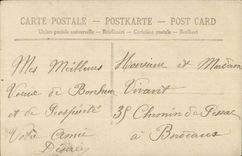 CARTE POSTALE — POSTKARTE — POST CARD
Union postale universelle — Briefkaart — Cartolina postale — Brefkort
Mes Meilleurs
Voeux de Bonheur
et de Prospérité
Votre Amie
Désirée
Monsieur et Madame
Vivant
35 Chemin de Pessac
à Bordeaux